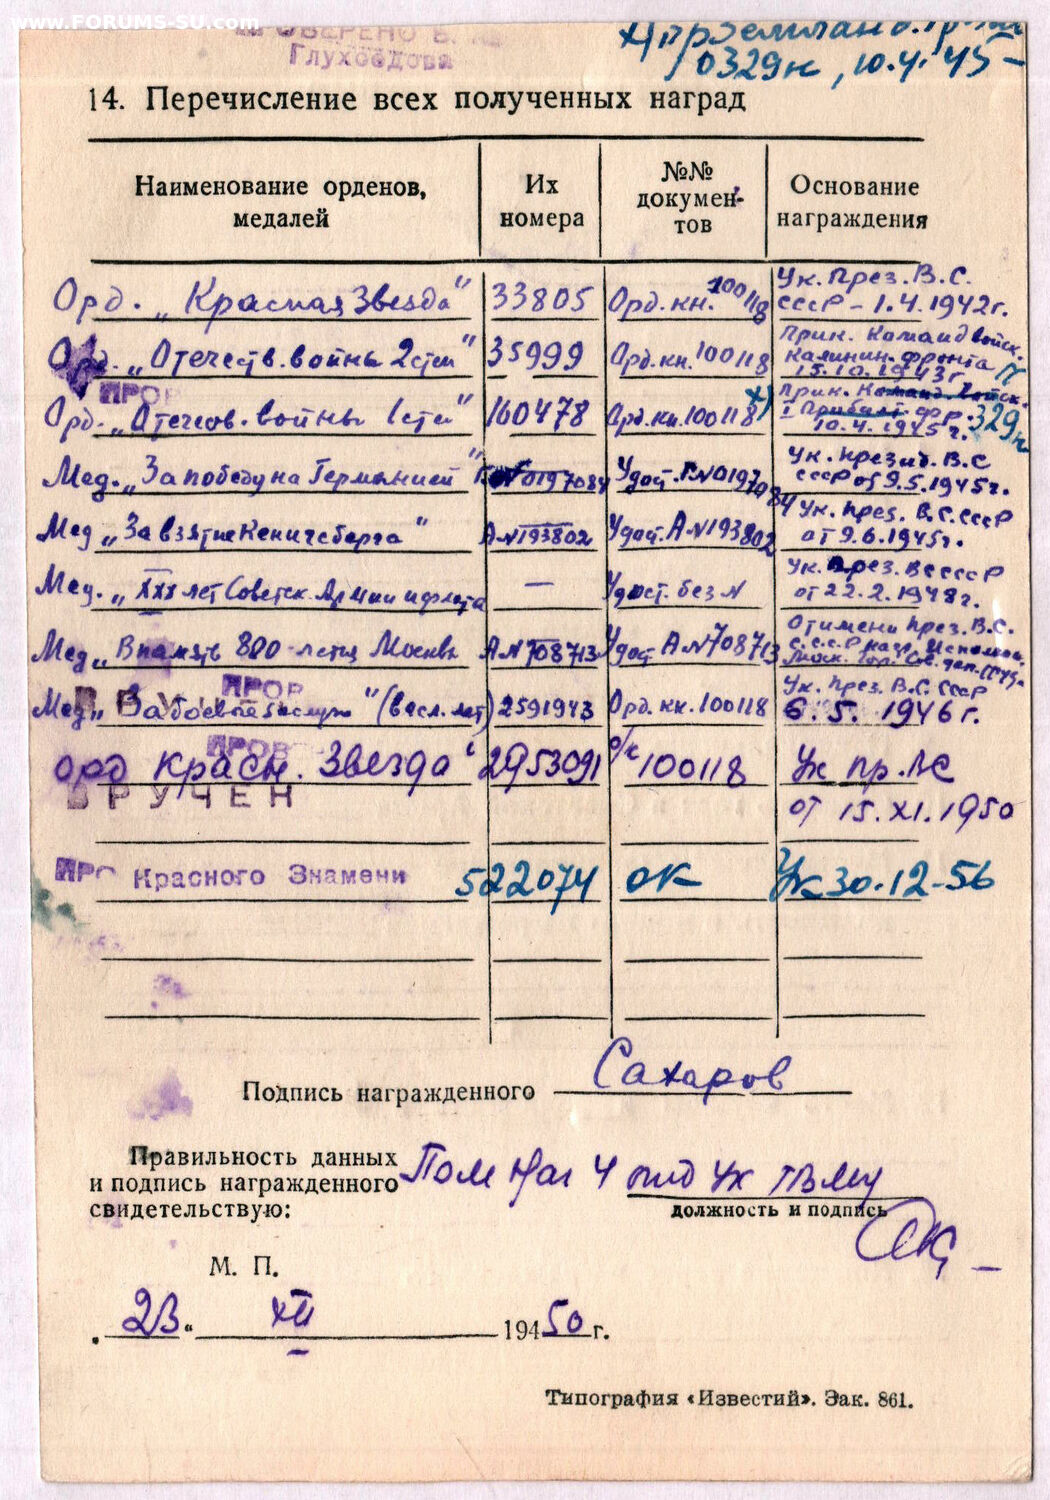 www.FORUMS-SU.com
ПРОВЕРЕНО
Глухоедова
0329н, 10.4.45 –
14. Перечисление всех полученных наград
Наименование орденов, медалей
Их номера
№№ докумен-тов
Основание награждения
Орд. „Красная Звезда" 33805 Орд. кн. 100118 Ук. През. В.С. СССР – 1.4.1942г.
Орд. „Отечеств. войны 2 степ 35999 Орд. кн. 100118 Прик. Команд войск. Калинин. фронта 15.10.1943г
ПРОВ
Орд. „Отечов. войны 1 степ" 160478 Орд. кн. 100118 х) Прик. Команд. войск. I Прибалт фр. 10.4.1945г. 329н
Мед. „За победу на Германией" №0197084 Удост. Г.№0197084 Ук. Презид. В.С СССР от 9.5.1945г.
Мед „За взятие Кенигсберга" А№193802 Удост. А№193802 Ук. През. В.С. СССР от 9.6.1945г.
Мед. „XXX лет Советск. Армии и флота — Удост. без № Ук. През. ВС СССР от 22.2.1948г.
Мед „В память 800-летия Москвы А№708713 Удост А№708713 От имени През. В.С. С.С.С.Р
ПРОВ
Мед „За боевые заслуги" (высл. лет) 2591943 Орд. кн. 100118 Ук. През. В.С. СССР 6.5. 1946г.
ПРОВ
Орд Красн. Звезда" 2953091 о/к 100118 Ук пр. ВС
ВРУЧЕН
от 15.XI.1950
ПРО Красного Знамени 522074 ОК Ук 30.12-56
Подпись награжденного Сахаров
Правильность данных
и подпись награжденного Пом Нач 4 отд Ук ТВМУ
свидетельствую: должность и подпись
М. П.
„23" XII 1950 г.
Типография «Известий». Зак. 861.